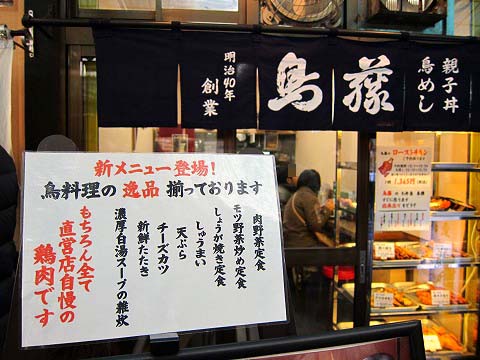 親子丼
鳥めし
鳥藤
明治40年
創業
新メニュー登場!
鳥料理の逸品揃っております
肉野菜定食
モツ野菜炒め定食
しょうが焼き定食
しゅうまい
天ぷら
チーズカツ
新鮮たたき
濃厚白湯スープの雑炊
もちろん全て
直営店自慢の
鶏肉です
ローストチキン